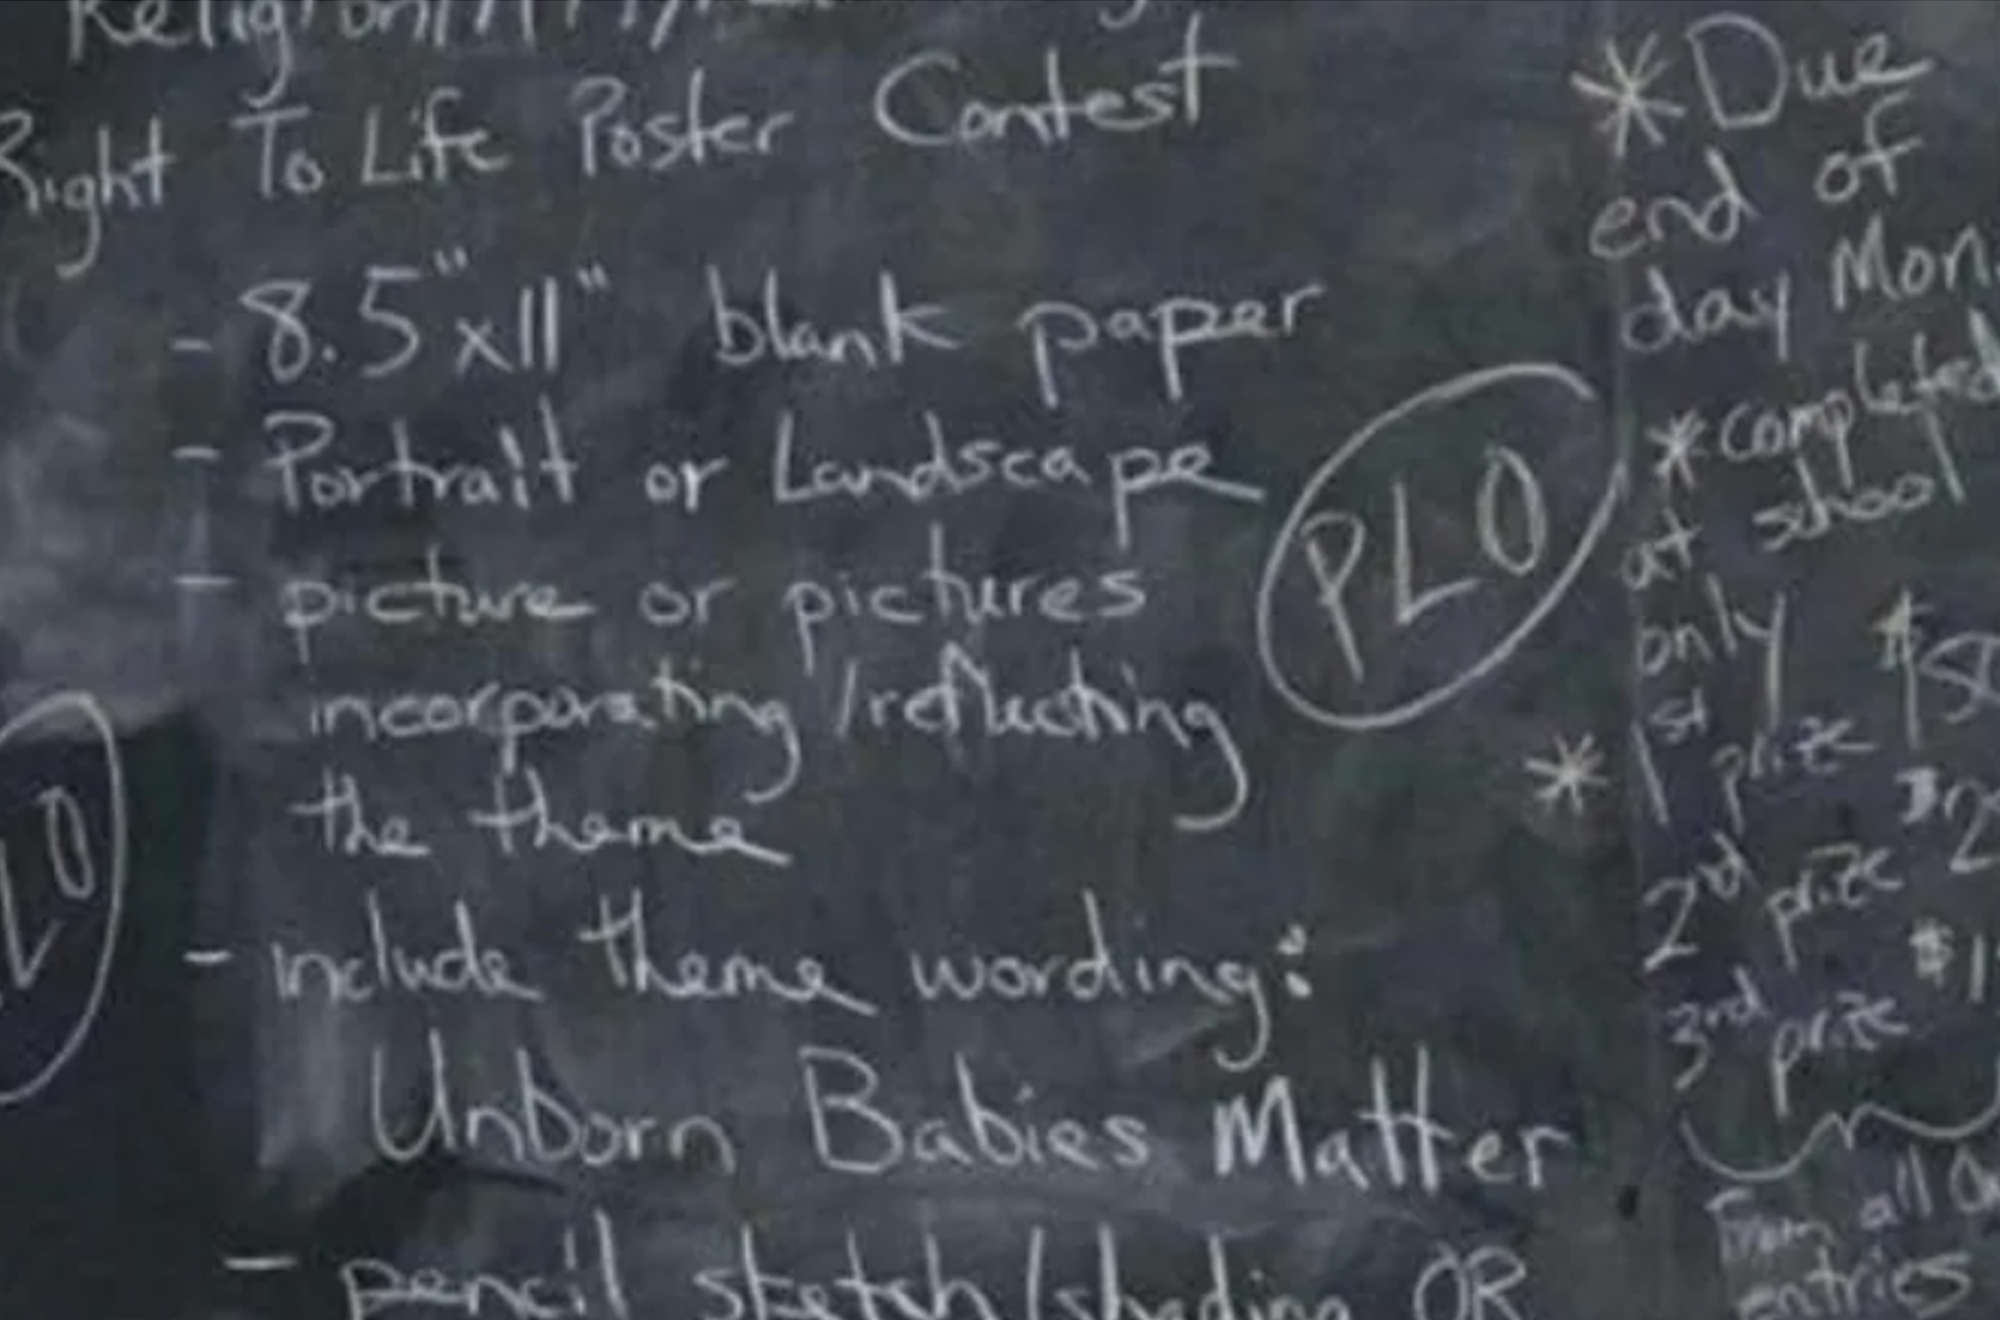 Religion
Right To Life Poster Contest
- 8.5"x11" blank paper
- Portrait or Landscape
- picture or pictures
incorporating/reflecting
the theme
- include theme wording:
Unborn Babies Matter
- pencil sketch/shading OR
PLO
LO
* Due
end of
day Mon.
* completed
at school
only
* 1st prize $
2nd prize $2
3rd prize $1
From all
entries